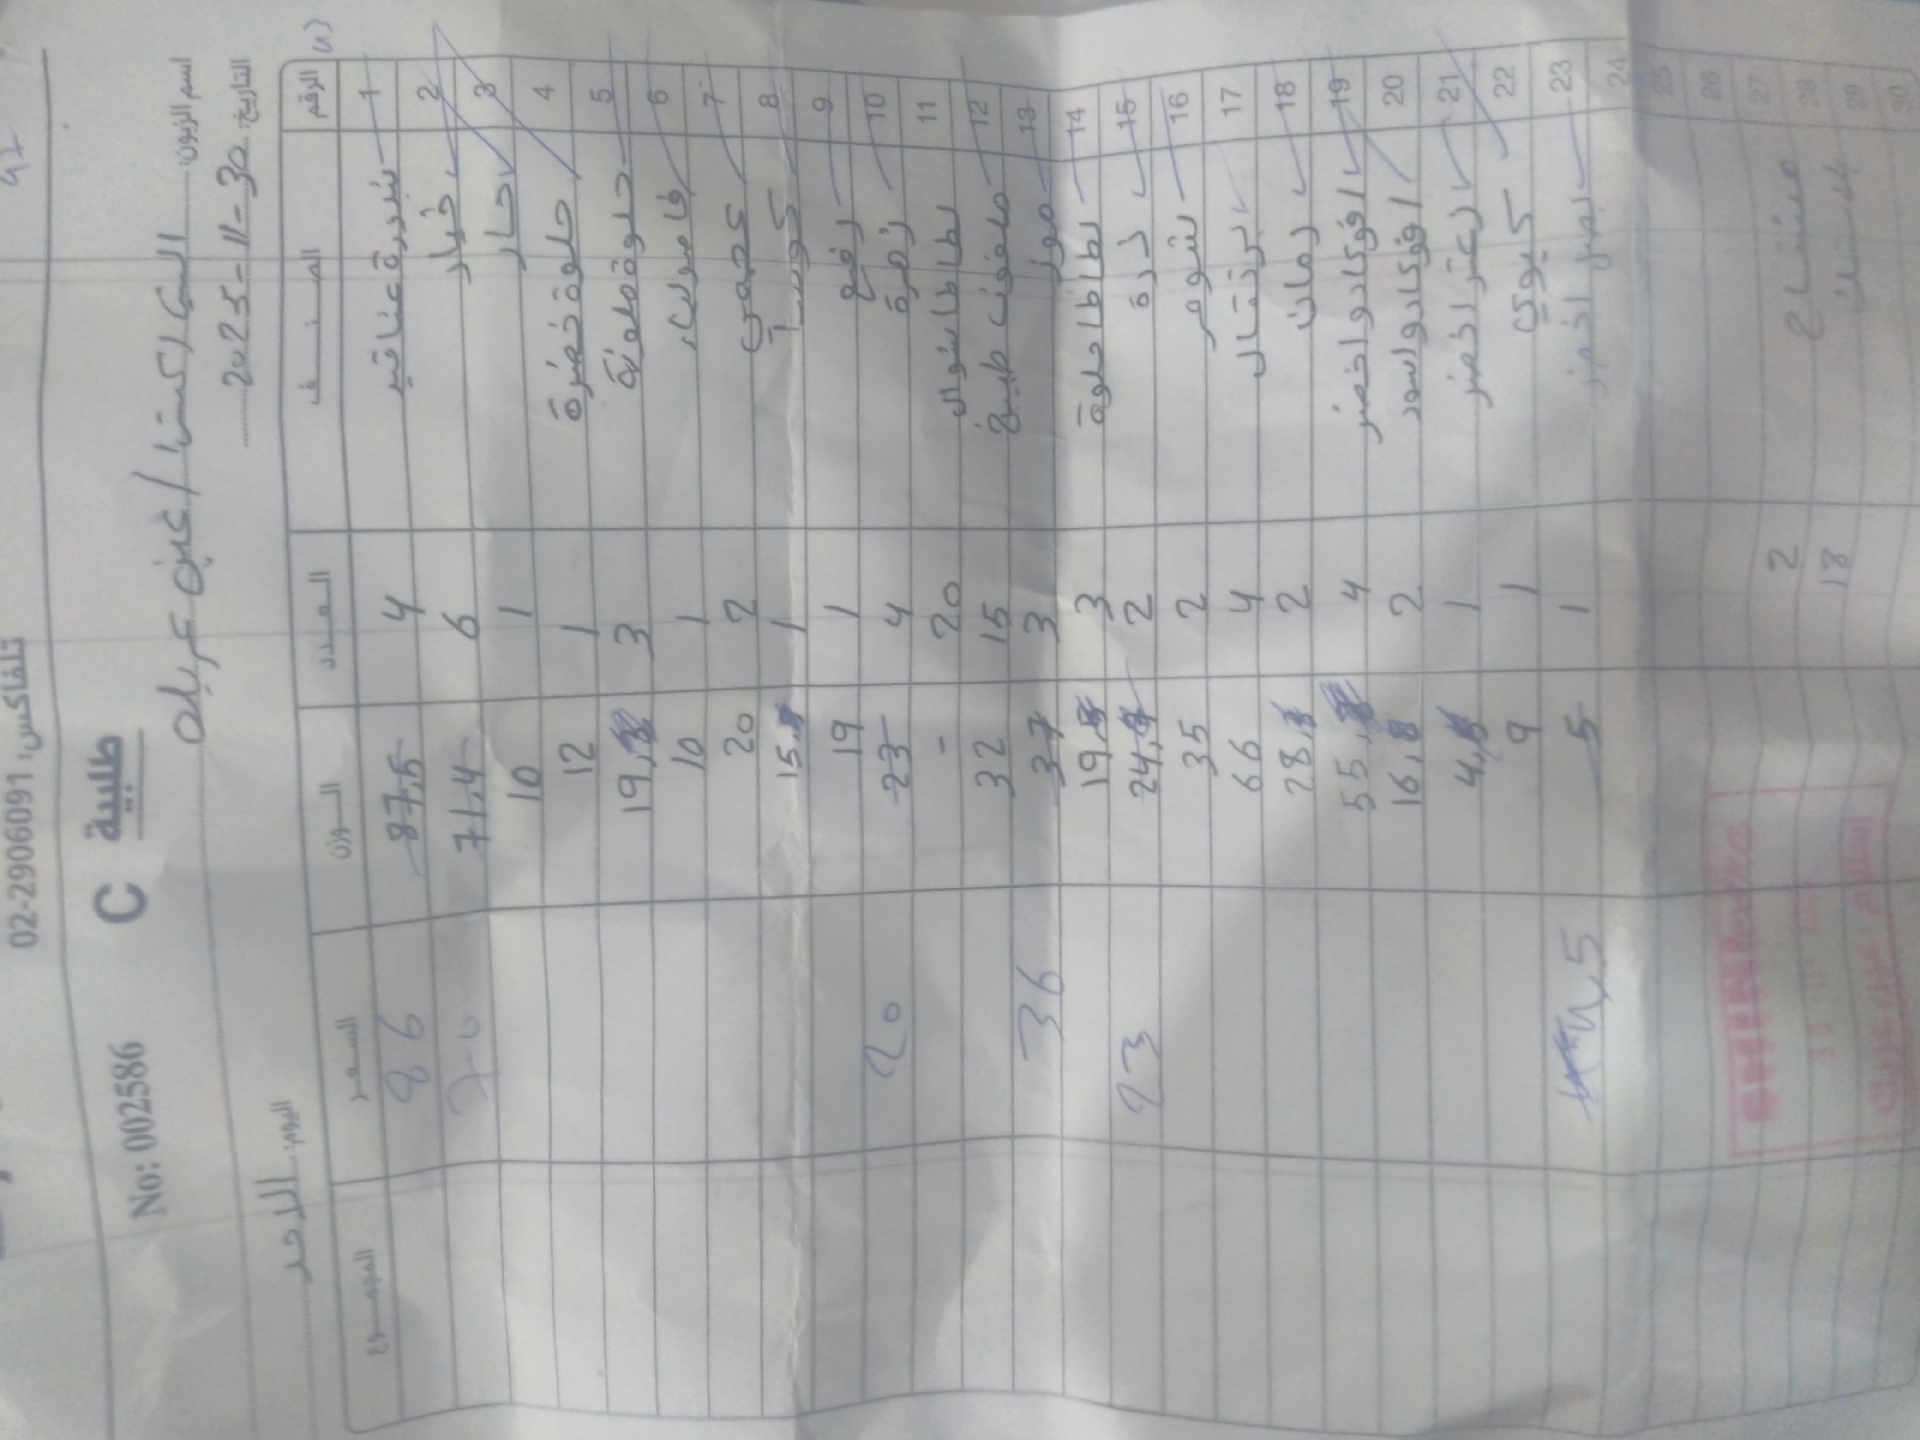 تلفاكس: 02-2906091
طلبية C
No: 002586
اسم الزبون: عين عريك
التاريخ: 30-11-2025
اليوم: الاحد
الرقم الصنف العدد الوزن السعر المجموع
1 بندورة عناقيد 4 87,5 86
2 خيار 6 71,4 70
3 حار 1 10
4 حلوة خضرة 1 12
5 حلوة ملونة 3 19
6 فاصوليا 1 10
7 2 20
8 كوسا 1 15
9 1 19
10 زهرة 4 23 20
11 بطاطا شوال 20 -
12 ملفوف طبيخ 15 32
13 موز 3 37 36
14 بطاطا حلوة 3 19
15 ذرة 2 24 23
16 شومر 2 35
17 برتقال 4 66
18 رمان 2 28
19 افوكادو اخضر 4 55
20 افوكادو اسود 2 16
21 زعتر اخضر 1 4
22 كيوي 1 9
23 بصل اخضر 1 5 4,5
24
25
26
27 2
28 18
29
30